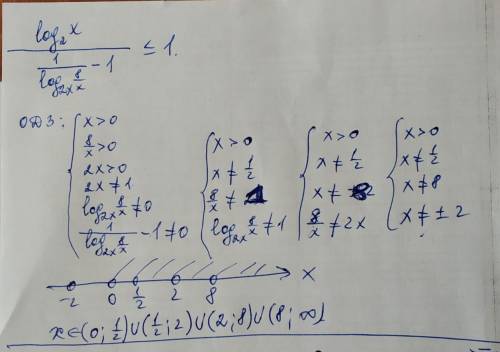 log₂x / (1/(log₂ₓ 8/x) - 1) ≤ 1.
ОДЗ: { x > 0
8/x > 0
2x > 0
2x ≠ 1
log₂ₓ 8/x ≠ 0
1/(log₂ₓ 8/x) - 1 ≠ 0
{ x > 0
x ≠ 1/2
8/x ≠ 1
log₂ₓ 8/x ≠ 1
{ x > 0
x ≠ 1/2
x ≠ 8
8/x ≠ 2x
{ x > 0
x ≠ 1/2
x ≠ 8
x ≠ ± 2
-2 0 1/2 2 8 x
x ∈ (0; 1/2) ∪ (1/2; 2) ∪ (2; 8) ∪ (8; ∞)